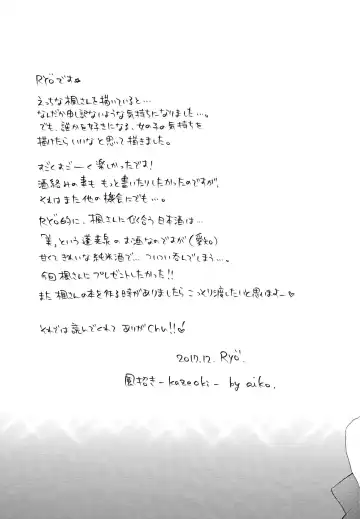 Ryöです
えっちな楓さんを描いていると…
なんだか申し訳ないような気持ちになりました…。
でも、誰かを好きになる、女の子の気持ちを
描けたらいいなと思って描きました。
すごくすごーく楽しかったです!
酒絡みの事ももっと書いたりしたかったのですが、
それはまた他の機会にでも…。
Ryö的に、楓さんに似合う日本酒は…
「美」という蓬莱泉のお酒なのですが(愛知)
甘くきれいな純米酒で… ついつい呑んでしまう…。
今回楓さんにプレゼントしたかった!!
また楓さんの本を作る時がありましたらこっそり渡したいと思いまよ〜♡
それでは読んでくれて ありがChu!!♡
2017.12. Ryö.
風招き -kazaoki- by aiko.